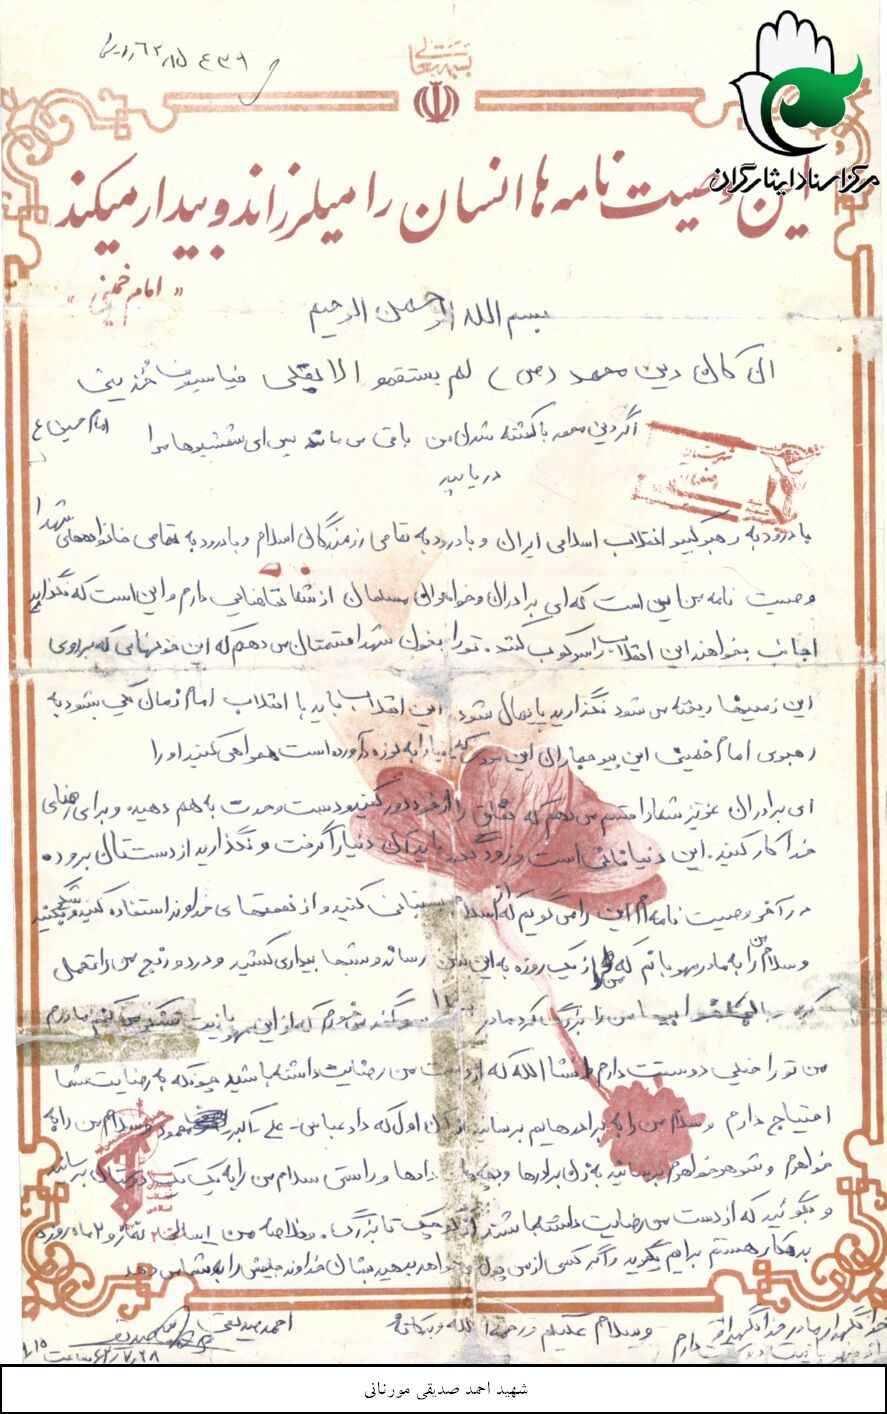 بسمه تعالی
مرکز اسناد ایثارگران
این وصیت نامه ها انسان را میلرزاند و بیدار میکند
«امام خمینی»
بسم الله الرحمن الرحیم
ان کان دین محمد (ص) لم یستقمو الا بقتلی فیا سیوف خذینی
اگر دین محمد با کشته شدن من باقی می ماند پس ای شمشیرها مرا امام حسین ع
دریابید
با درود به رهبر کبیر انقلاب اسلامی ایران و با درود به تمامی رزمندگان اسلام و با درود به تمامی خانواده های شهدا
وصیت نامه من این است که ای برادران و خواهران مسلمان از شما تقاضایی دارم و این است که نگذارید
اجانب بخواهند این انقلاب را سرکوب کنند. تو را بخون شهدا قسمتان می دهم که این خونهایی که بر روی
این زمینها ریخته می شود نگذارید پایمال شود. این انقلاب باید با انقلاب امام زمان یکی بشود به
رهبری امام خمینی این پیر جماران این مردی که دنیا را به لرزه درآورده است همراهی کنید او را
ای برادران عزیز شما را قسم می دهم که نفاق را از خود دور کنید و دست وحدت به هم دهید و برای رضای
خدا کار کنید. این دنیا فانی است و زود گذر باید آن دنیا را گرفت و نگذارید از دستتان برود
در آخر وصیت نامه ام این را می گویم که از اسلام پشتیبانی کنید و از نعمتهای خداوند استفاده کنید و شکر بکنید
وسلام من را به مادر مهربانم که مرا از یک روزه به این سن رساند و شبها بیداری کشید و درد و رنج من را تحمل
کرد من را بزرگ کرد مادر می خورم که از این مهربانیت تشکر می کنم مادرم
من تو را خیلی دوست دارم انشا الله که از دست من رضایت داشته باشید چونکه به رضایت شما
احتیاج دارم وسلام من را به برادرهایم برسانید از آن اول که داد عباس - علی - اکبر محمود وسلام من را به
خواهرم و شوهر خواهرم برسانید به زن برادرها و بچه ها و راستی سلام من را به یک یک دوستان برسانید
و بگوئید که از دست من رضایت داشته باشند از کوچک تا بزرگ. وخلاصه من نماز و ۲ ماه روزه
بدهکار هستم برایم بگیرید و اگر کسی از من پول می خواهد بدهید بشان خداوند عوضش را به شما می دهد
وسلام علیکم ورحمة الله وبرکاته
احمد صدیقی
خدا نگهدار مادر خدا نگهدار
شهید احمد صدیقی مورنانی